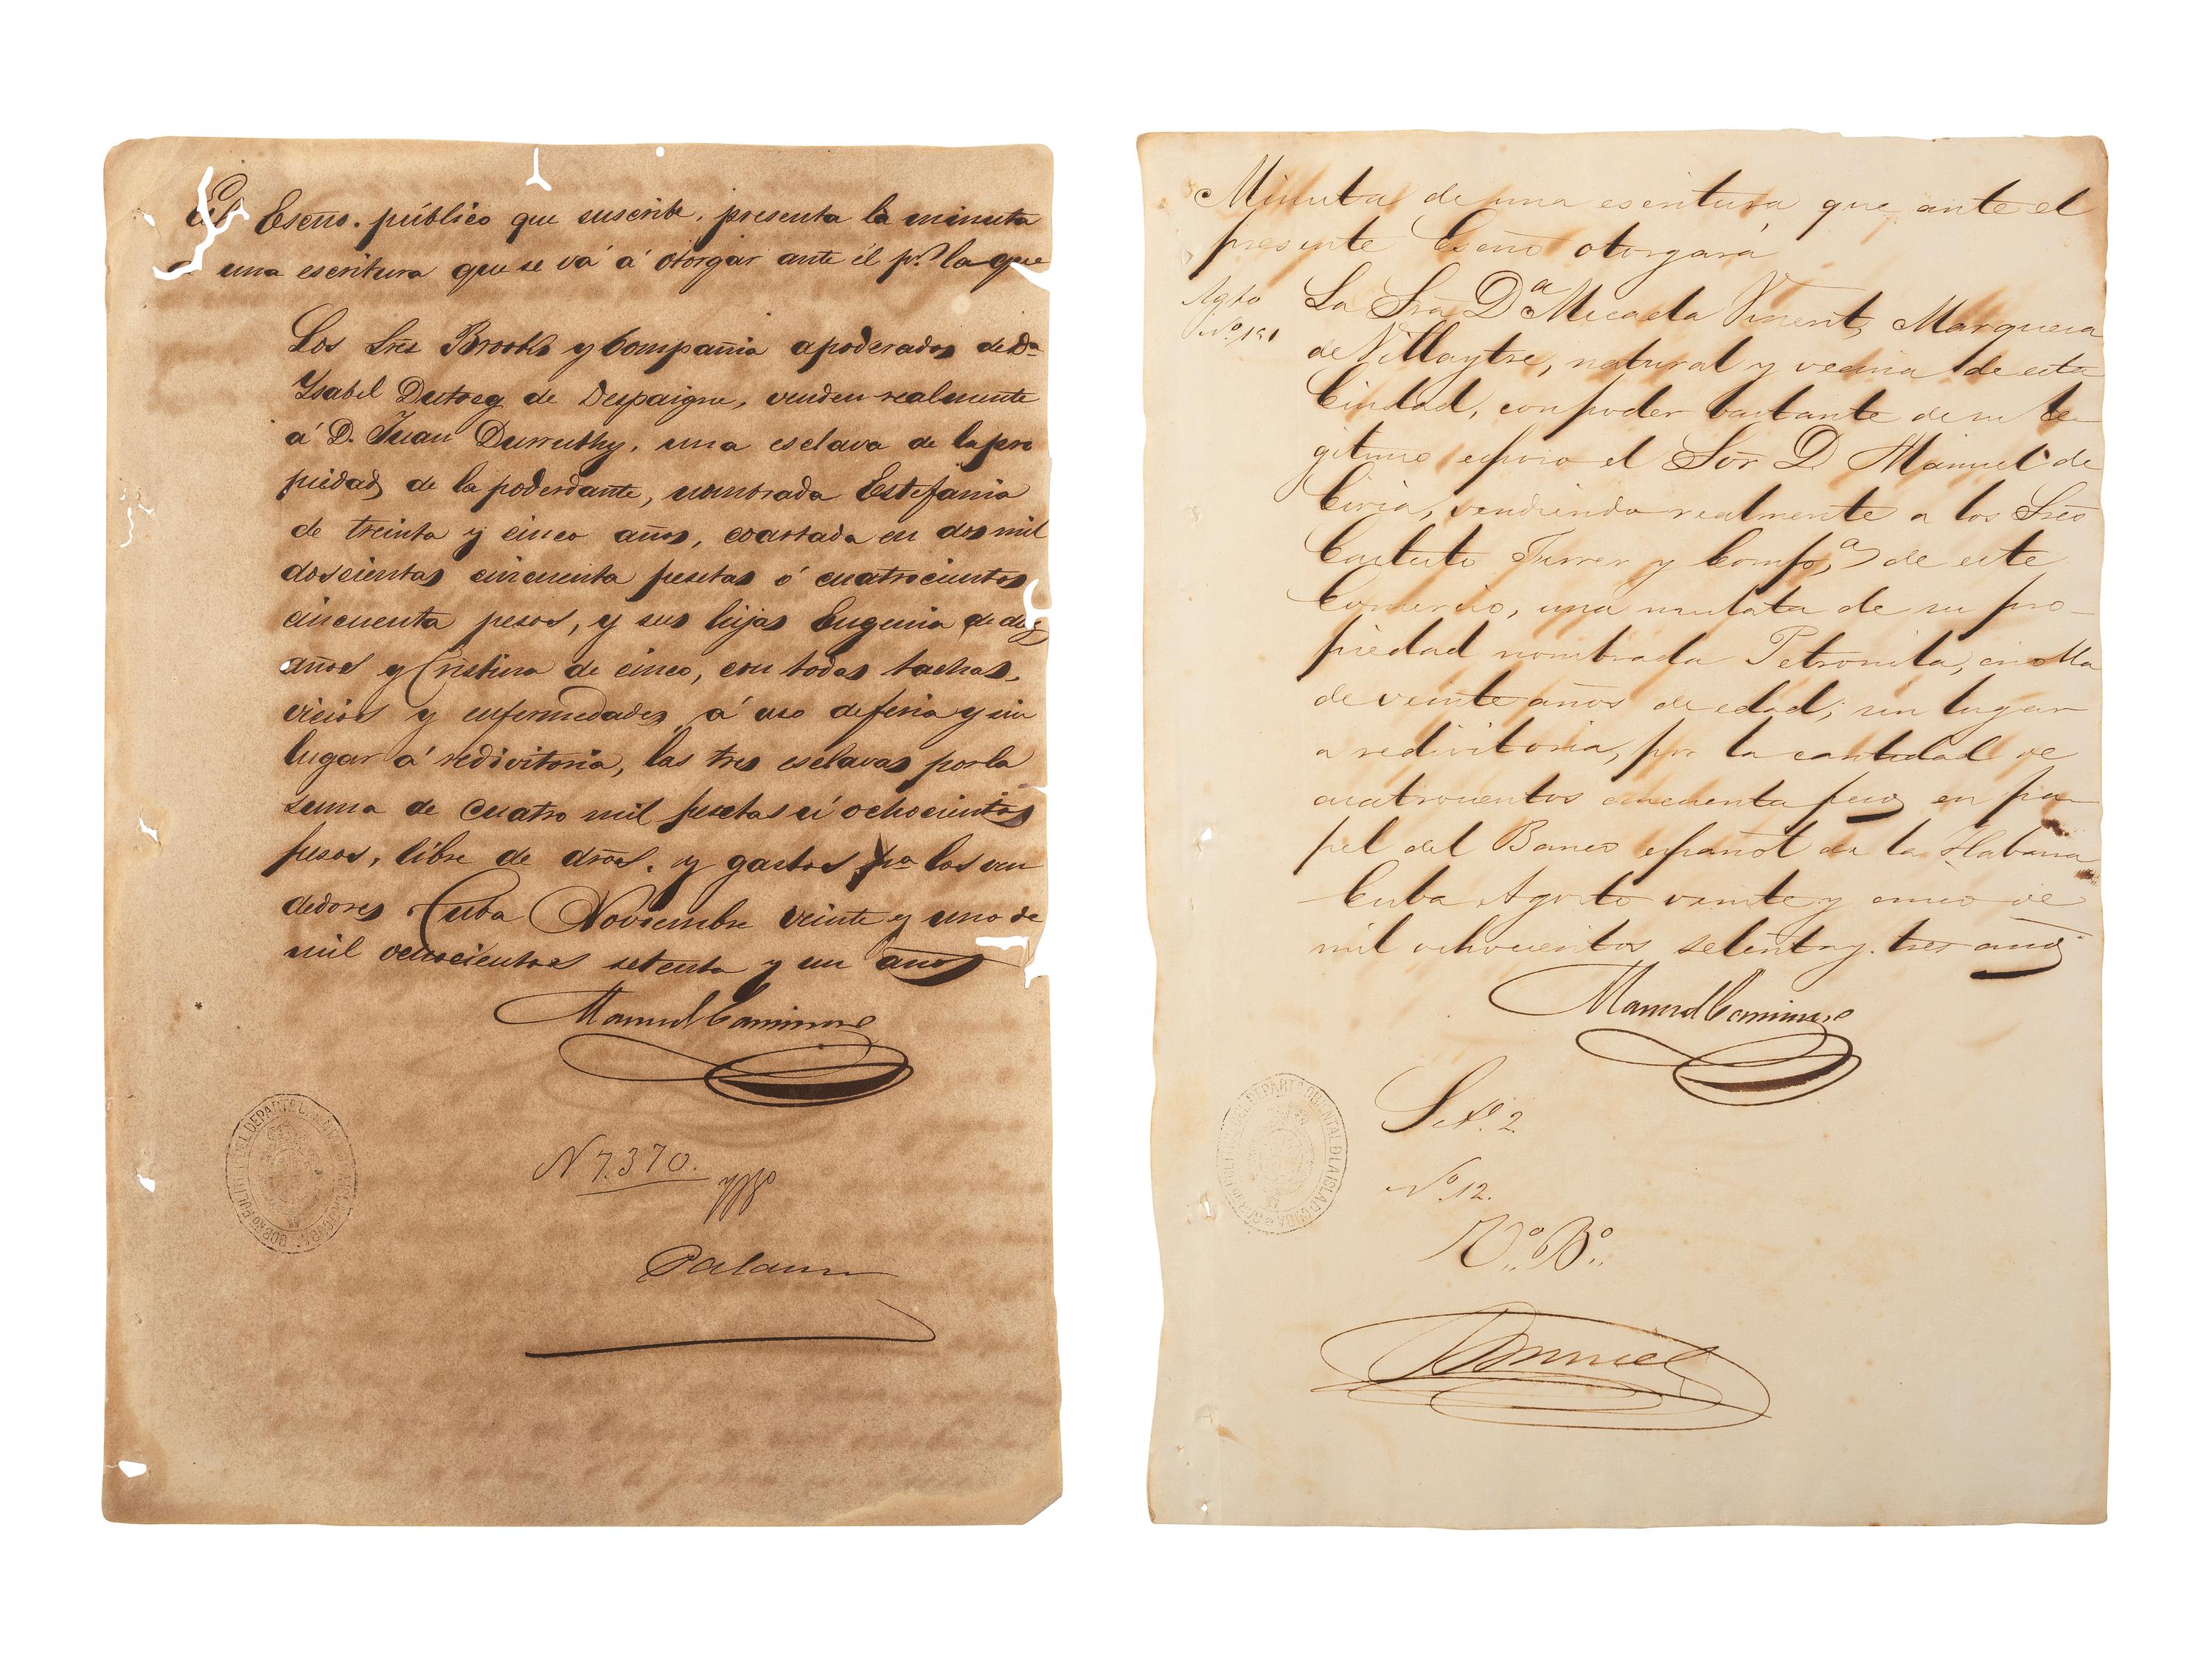 El Escno. público que suscribe, presenta la minuta
una escritura que se vá á otorgar ante él pr. la que
Los Sres Brooks y Compañia apoderados de Da
Ysabel Dutreg de Despaigne, venden realmente
á D. Juan Durruthy, una esclava de la pro
piedad de la poderdante, nombrada Estefania
de treinta y cinco años, coartada en dos mil
doscientas cincuenta pesetas ó cuatrocientos
cincuenta pesos, y sus hijas Eugenia de diez
años y Cristina de cinco, con todas tachas,
vicios y enfermedades á uso de feria y sin
lugar á redivitoria, las tres esclavas por la
suma de cuatro mil pesetas ú ochocientos
pesos, libre de dros. y gastos pa los ven
dedores Cuba Noviembre veinte y uno de
mil ochocientos setenta y un años
Manuel Caminero
N 7.370.
GOBNO POLIT DEL DEPARTO
Minuta de una escritura que ante el
presente Escno otorgará
Agto
No. 191
La Sra Da Micaela Vinent, Marquesa
de Villaytre, natural y vecina de esta
Ciudad, con poder bastante de su le
gitimo esposo el Sor D Manuel de
Ciria, vendiendo realmente a los Sres
Ferrer y Compa, de este
Comercio, una mulata de su pro-
piedad nombrada Petronila, criolla
de veinte años de edad, sin lugar
a redivitoria, por la cantidad de
cuatrocientos cincuenta pesos en pa
pel del Banco español de la Habana
Cuba Agosto veinte y cinco de
mil ochocientos setenta y tres años
Manuel Caminero
GOBNO POLIT DEL DEPARTO ORIENTAL D LA ISLA D CUBA
Set. 2
No. 12.
Vo. Bo.